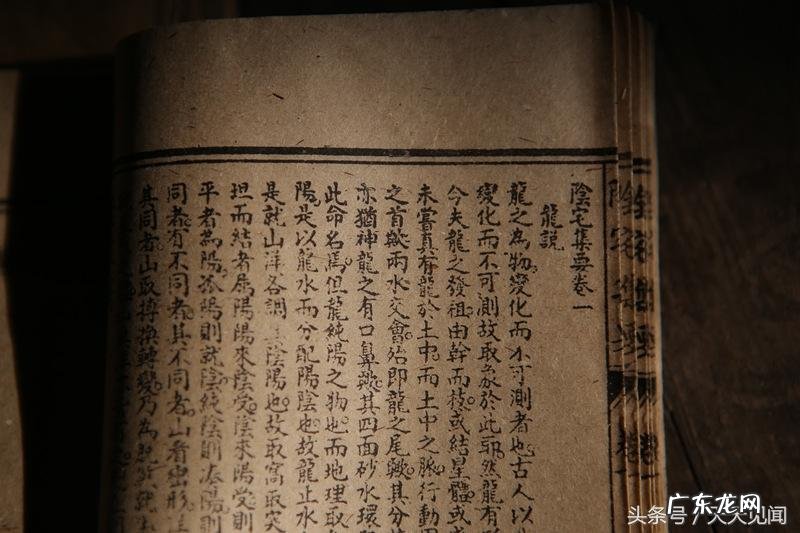 陰宅集要卷一
龍說
龍之為物變化而不可測者也古人以
變化而不可測故取象於此耶然龍有
今夫龍之發祖由幹而枝或結星體或
未嘗真有龍於土中而土中之脉行動
之首歟兩水交會殆即龍之尾歟其分
亦猶神龍之有口鼻歟其四面砂水環
此命名焉但龍純陽之物也而地理取
陽是以龍水而分配陽陰也故龍止水
是就山洋各調其陰陽也故取窩取突
坦而結者屬陽陽來陰受陰來陽受則
平者為陽孤陽則就陰純陰則湊陽則
同者有不同者其不同者山看巒形
其同者山取摶換轉變乃為
陰宅集要
卷一
广东龙网
头条号/天天见闻